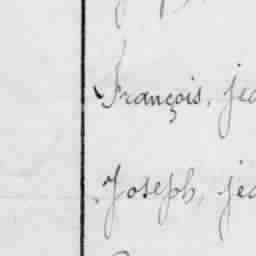 François, je
Joseph, je